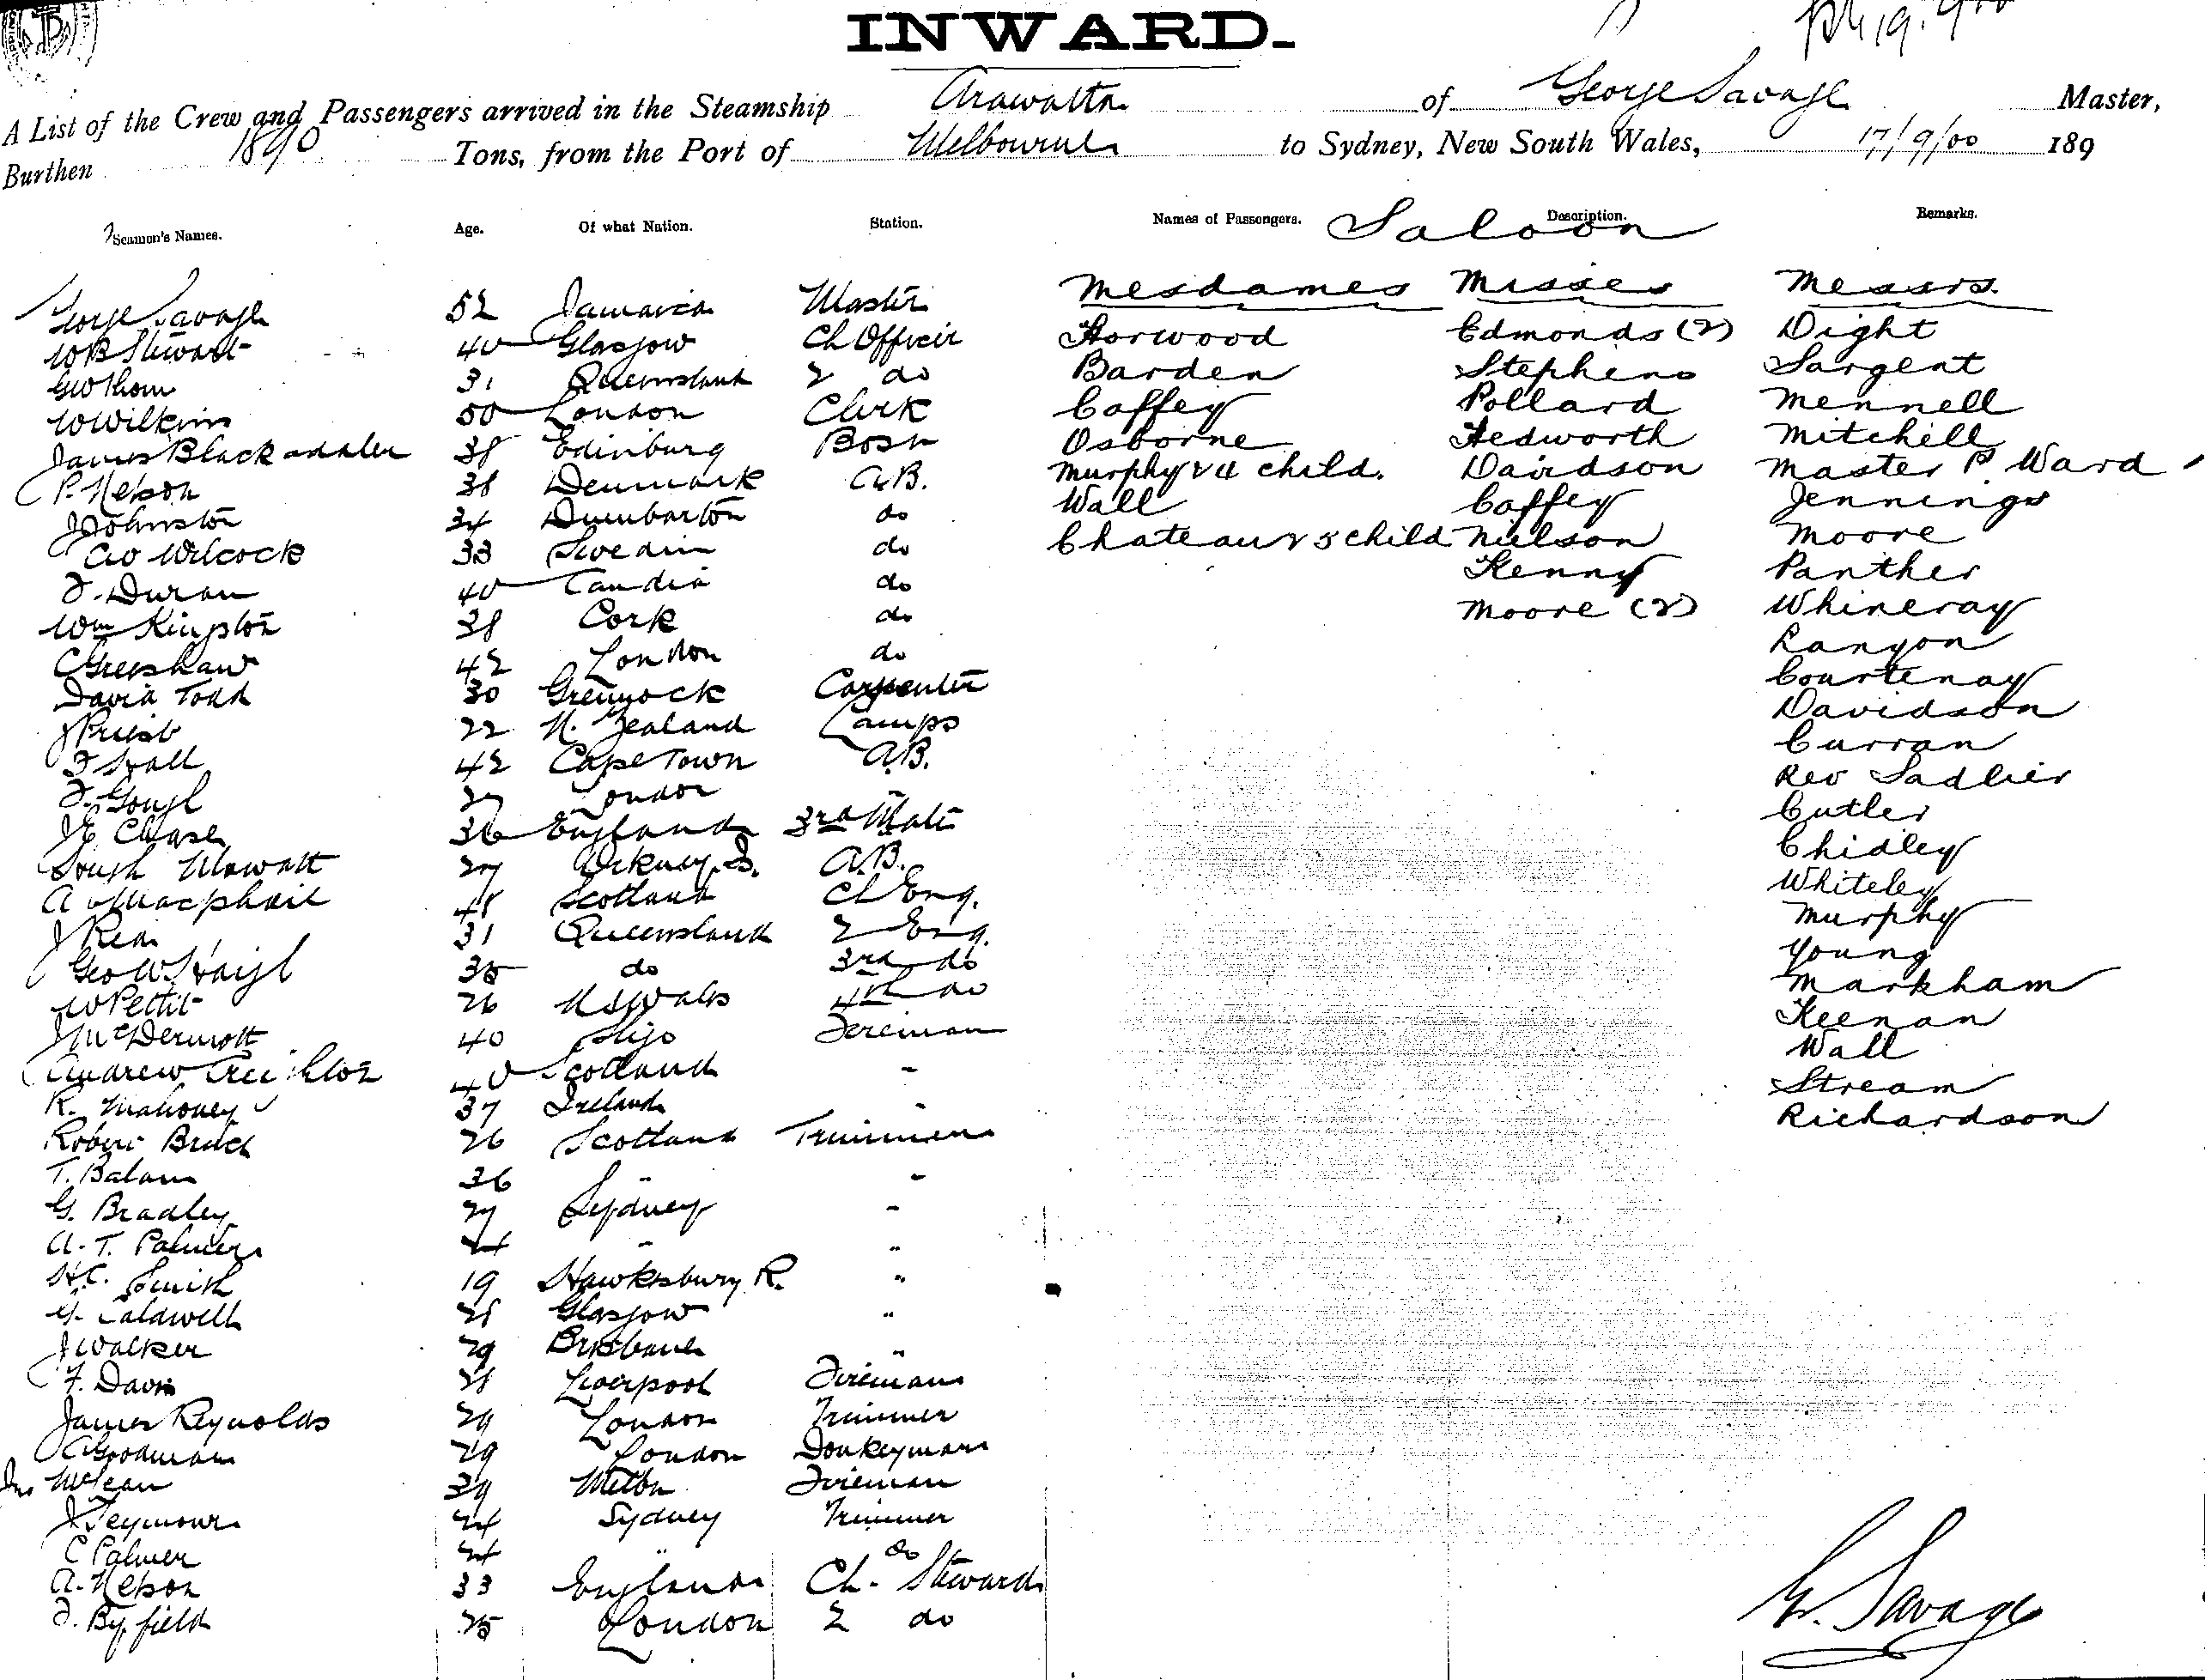 INWARD.
A List of the Crew and Passengers arrived in the Steamship Arawatta of George Savage Master,
Burthen 1890 Tons, from the Port of Melbourne to Sydney, New South Wales, 17/9/00 189
Seamen's Names. Age. Of what Nation. Station. Names of Passengers. Saloon Description. Remarks.
Mesdames Misses Messrs.
George Savage 52 Jamaica Master
Horwood Edmonds (2) Dight
W B Steward 40 Glasgow Ch Officer
Barden Stephens Sargent
G W Thom 31 Queensland 2 do
Caffey Pollard Mennell
W Wilkins 50 London Clerk
Osborne Hedworth Mitchell
James Blackadder 38 Edinburg Bosn
Murphy & 4 child. Davidson Master P Ward
P. Nelson 38 Denmark A.B.
Wall Caffey Jennings
J Johnston 34 Dumbarton do
Chateau & 5 child Nielson Moore
Wilcock 33 Sweden do
Kenny Panther
F. Duran 40 Candia do
Moore (2) Whineray
Wm Kingston 38 Cork do
Ranyon
C Greenshaw 42 London do
Courtenay
David Todd 30 Greenock Carpenter
Davidson
J Priest 22 N. Zealand Lamps
Curran
F Hall 42 Cape Town A.B.
Rev Sadlier
F. Gough 27 London
Cutler
J E Chase 36 England 3rd Mate
Chidley
Mowatt 27 Orkney Is. A.B.
Whiteley
A Macphail 48 Scotland Ch Eng.
Murphy
J Reid 31 Queensland 2 Eng.
Young
Geo W. Haigh 35 do 3rd do
Markham
W Pettit 26 N S Wales 4th do
Keenan
J McDermott 40 Sligo Fireman
Wall
Andrew Creighton 40 Scotland "
Stream
R. Mahoney 37 Ireland "
Richardson
Robert Bruce 26 Scotland Trimmer
T. Balam 36 " "
G. Bradley 27 Sydney "
A. T. Palmer 24 " "
H.C. Smith 19 Hawksbury R. "
G. Caldwell 28 Glasgow "
J Walker 29 Brisbane "
F. Davis 28 Liverpool Fireman
James Reynolds 29 London Trimmer
C Goodman 29 London Donkeyman
Jno McLean 39 Melbn Fireman
J Seymour 24 Sydney Trimmer
C Palmer 24 " do
A. Nelson 33 England Ch. Steward
F. Byfield 25 London 2 do
G. Savage